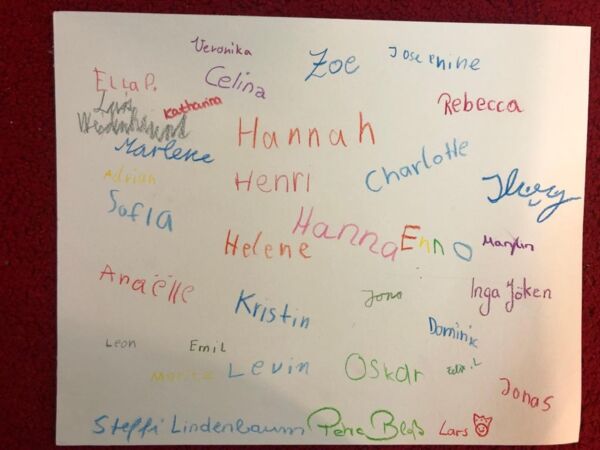 Veronika
Zoe
Josephine
Ella P.
Celina
Lars
Katharina
Rebecca
Hannah
Marlene
Charlotte
Adrian
Henri
Sofia
Hanna
Enno
Marylin
Helene
Anaëlle
Inga Jöken
Kristin
Jono
Dominik
Leon
Emil
Moritz
Levin
Oskar
Jonas
Steffi Lindenbaum
Petra
Lars